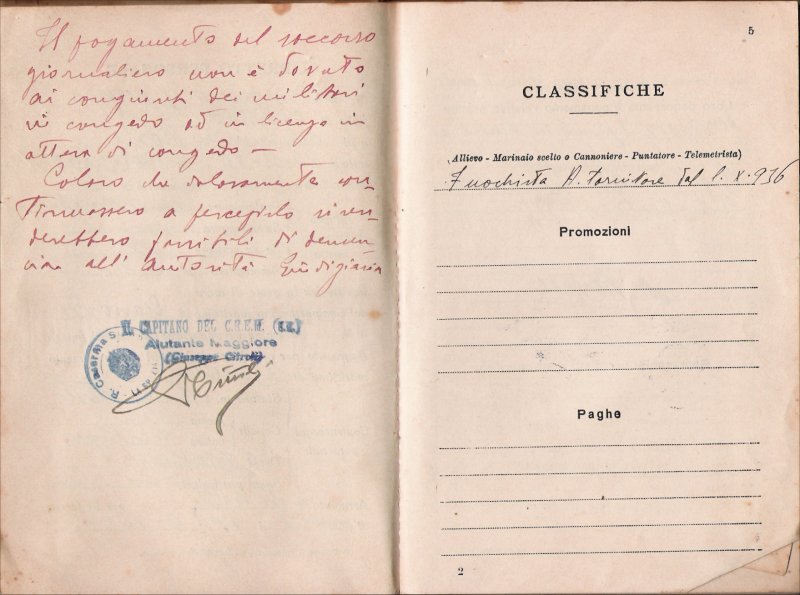 Il pagamento del soccorso
giornaliero non è dovuto
ai congiunti dei militari
in congedo od in licenza in
attesa di congedo —
Coloro che dolosamente con-
tinuassero a percepirlo si ren-
derebbero passibili di denun-
cia all' Autorità Giudiziaria
IL CAPITANO DEL C.R.E.M. (S.E.)
Aiutante Maggiore
(Giuseppe Citroli)
R. Caserma S.
5
CLASSIFICHE
(Allievo - Marinaio scelto o Cannoniere - Puntatore - Telemetrista)
Fuochista A. Tornitore dal 1. X. 936
Promozioni
Paghe
2